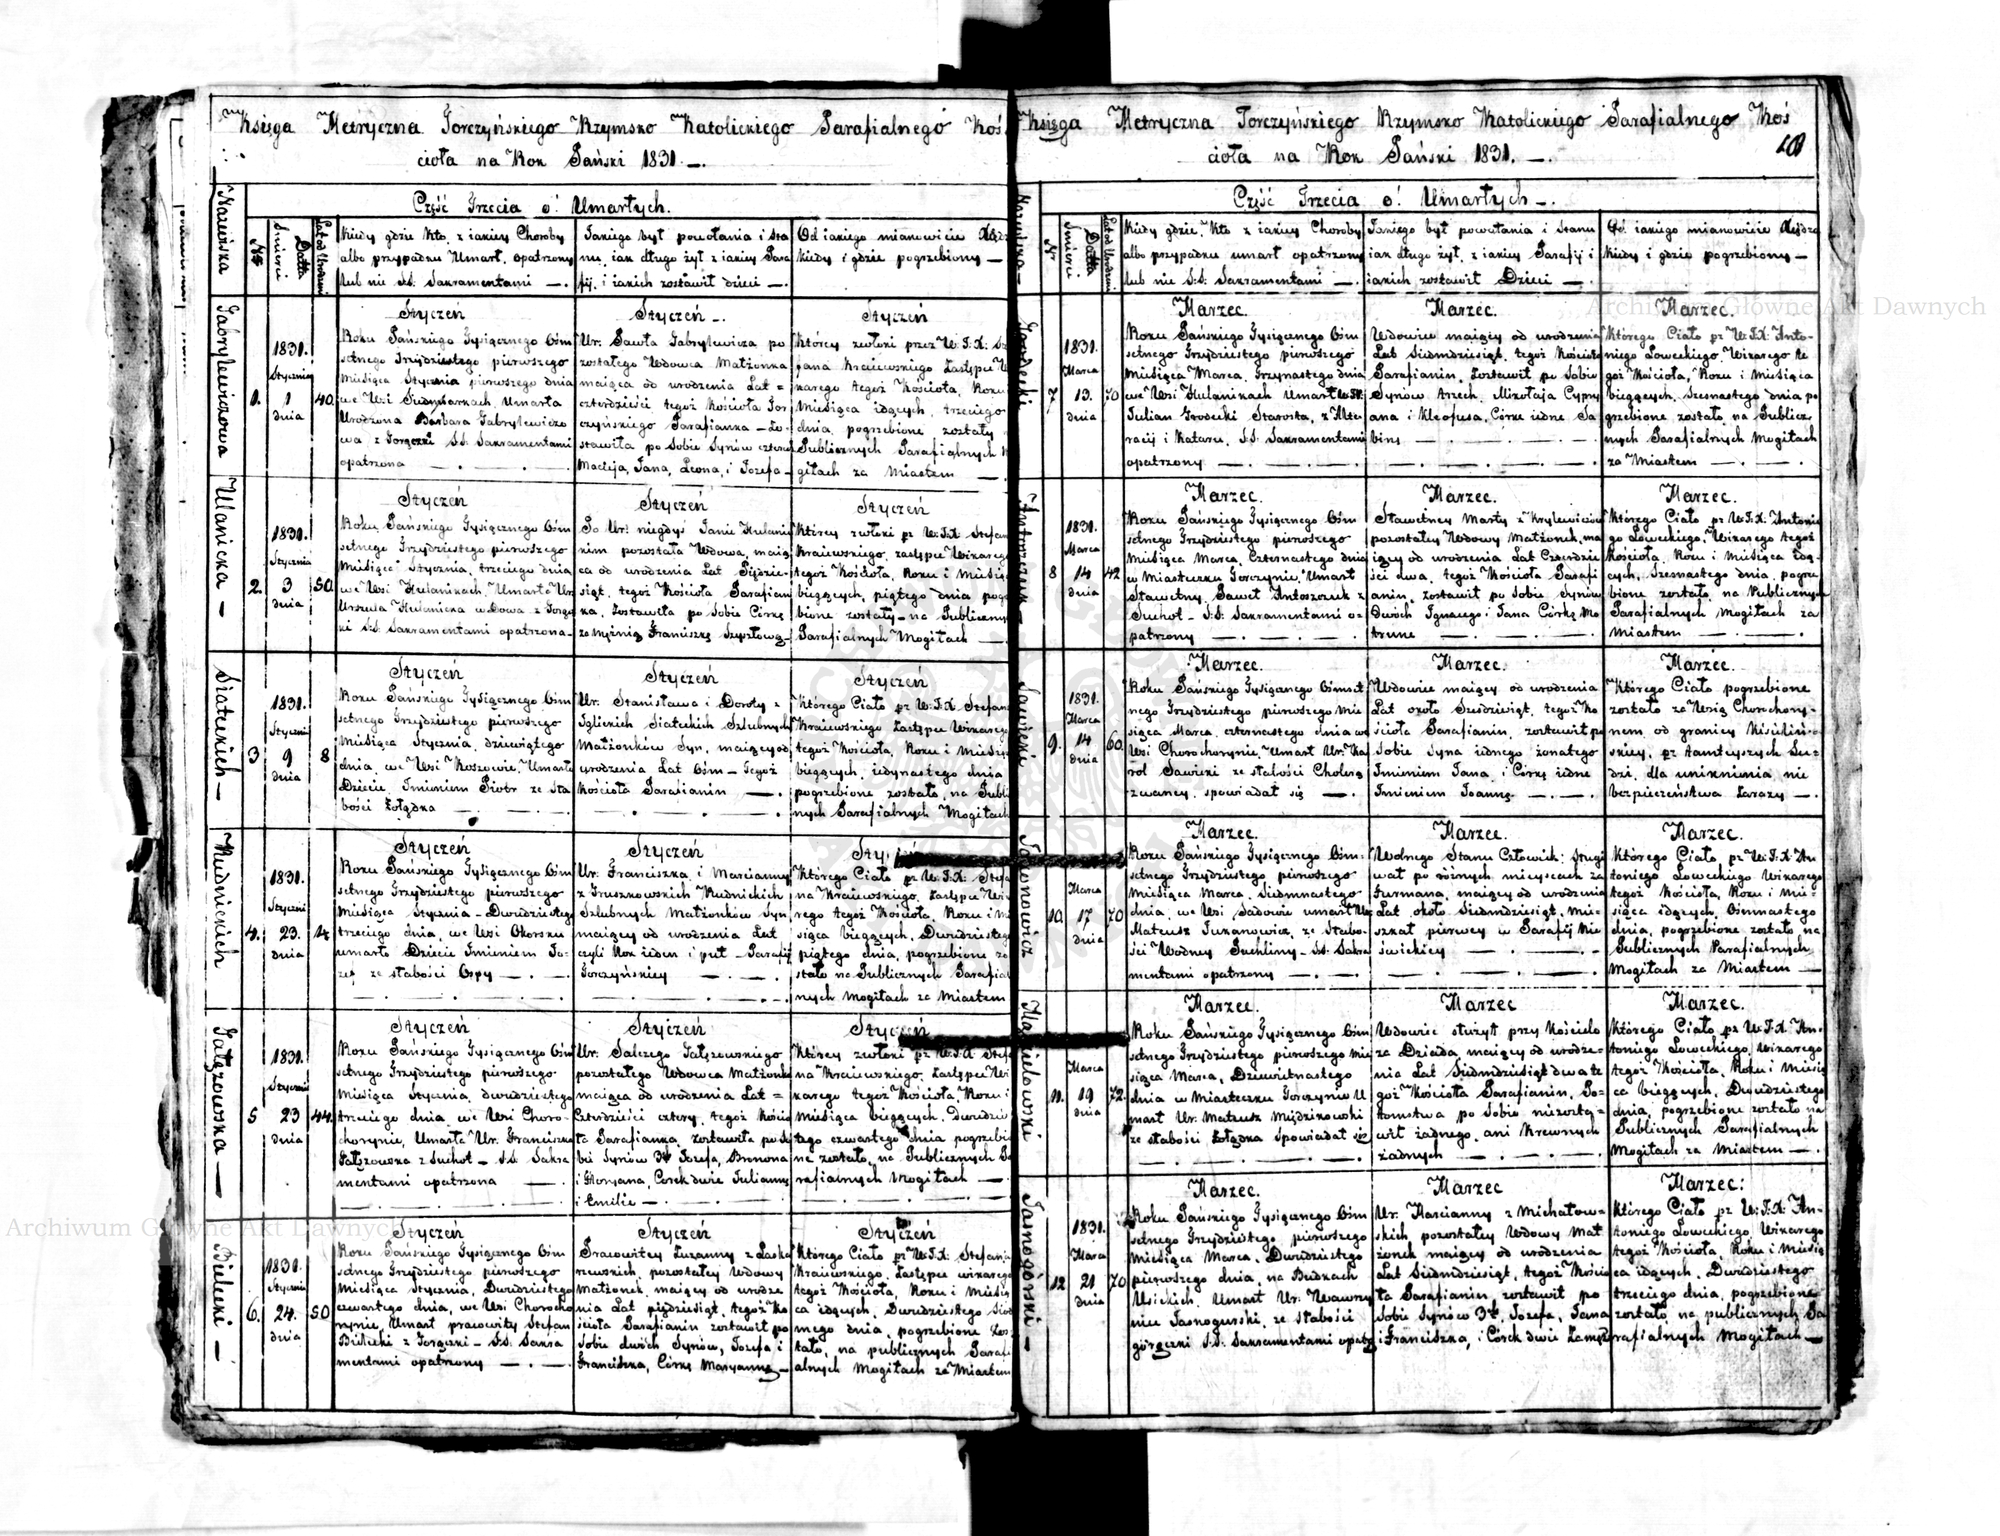 Księga Metryczna Torczyńskiego Rzymsko Katolickiego Parafialnego Koś
cioła na Rok Pański 1831. —.
Część Trzecia o' Umarłych.
Nazwiska
Nr
Datta Śmierci
Lat od Urodzeni
Kiedy gdzie kto, z iakiey Choroby
albo przypadku Umarł, opatrzony
lub nie S.S. Sakramentami —.
Jakiego był powołania i sta
nu, iak długo żył z iakiey Para
fij. i iakich zostawił dzieci —.
Od iakiego mianowicie Xię
kiedy i gdzie pogrzebiony —
Gabrylewiczowa
1.
1831.
Stycznia
1
dnia
40.
Styczeń
Roku Pańskiego Tysiącznego Ośm
setnego Trzydziestego pierwszego
Miesiąca Stycznia pierwszego dnia
we Wsi Sadmiarkach, Umarła
Urodzona Barbara Gabrylewiczo
wa z Gorączki S.S. Sakramentami
opatrzona —
Styczeń —.
Ur. Pawła Gabrylewicza po
zostałego Wdowca Małżonka
maiąca od urodzenia Lat =
czterdzieści tegoż Kościoła Tor
czyńskiego Parafianka — Zo-
stawiła po Sobie Synów czterech
Macieja, Jana, Leona, i Jozefa-
Styczeń
Którey zwłoki przez W. J. X. S
fana Kraiewskiego Zastępcę W
karego tegoż Kościoła, Roku
Miesiąca idących, trzeciego
dnia, pogrzebione zostały
Publicznych Parafialnych M
giłach za Miastem —
Ulanicka —
2.
1831.
Stycznia
3
dnia
50.
Styczeń
Roku Pańskiego Tysiącznego Ośm
setnego Trzydziestego pierwszego
Miesiąca Stycznia, trzeciego dnia
we Wsi Hulanikach, Umarła Ur.
Urszula Hulanicka wdowa z Gorącz
ki S.S. Sakramentami opatrzona —
Styczeń
Po Ur: niegdyś Janie Hulanic
kim pozostała Wdowa, maią
ca od urodzenia Lat Pięдzie-
siąt, tegoż Kościoła Parafian
ka, Zostawiła po Sobie Córkę
zamężnią Franciszkę Szysłową —
Styczeń
Którey zwłoki pr W. J. X. Stefan
Kraiewskiego, zastępcę Wikarego
tegoż Kościoła, Roku i Miesią
bieżących, piątego dnia pog
bione zostały — na Publicznych
Parafialnych Mogiłach —
Siateckich —
3
1831.
Stycznia
9
dnia
8
Styczeń
Roku Pańskiego Tysiącznego Ośm
setnego Trzydziestego pierwszego
Miesiąca Stycznia, dziewiątego
dnia, we Wsi Koszowie, Umarło
Dziecie Imieniem Piotr ze Sła
bości Żołądka —
Styczeń
Ur. Stanisława i Doroty z
Iglickich Siateckich Szlubnych
Małżonków Syn, maiący od
urodzenia Lat Ośm — Tegoż
Kościoła Parafianin —.
Styczeń
Którego Ciało pr W. J. X. Stefana
Kraiewskiego Zastępcę Wikarego
tegoż Kościoła, Roku i Miesią
bieżących, iedynastego dnia
pogrzebione zostało, na Publi
nych Parafialnych Mogiłach
Rudnickich
4.
1831.
Styczni
23.
dnia
1½
Styczeń
Roku Pańskiego Tysiącznego Ośm
setnego Trzydziestego pierwszego
Miesiąca Stycznia — Dwudziestego
trzeciego dnia, we Wsi Okorsku
umarło Dziecie Imieniem Jo-
zef, ze słabości Ospy —
Styczeń
Ur. Franciszka i Marcianny
z Gruszkowskich Rudnickich
Szlubnych Małżonków Syn
maiący od urodzenia Lat
czyli Rok ieden i puł — Parafij
Torczyńskiey —
Styczeń
Którego Ciało, pr W. J. X. Stefa
na Kraiewskiego, Zastępcę Wi
rego tegoż Kościoła, Roku i M
siąca bieżących, Dwudziestego
piątego dnia, pogrzebione zo
stało na Publicznych Parafial
nych Mogiłach za Miastem
Gałęzowska —
5
1831.
Stycznia
23
dnia
44.
Styczeń
Roku Pańskiego Tysiącznego Ośm
setnego Trzydziestego pierwszego
Miesiąca Stycznia, dwudziestego
trzeciego dnia, we Wsi Choro-
chorynie, Umarła Ur. Franciszka
Gałęzowska z Suchot — S.S. Sakra
mentami opatrzona —
Styczeń
Ur. Salezego Gałęzowskiego
pozostałego Wdowca Małżonka
maiąca od urodzenia Lat =
Czterdzieści cztery, tegoż Kościo
ła Parafianka, zostawiła po So
bie Synów 3ch Jozefa, Brunona
i Floryana, Corek dwie Juliannę
i Emilie —.
Styczeń
Którey zwłoki pr W. J. X. Stefa
na Kraiewskiego, Zastępcę Wi
karego tegoż Kościoła, Roku i
Miesiąca bieżących, Dwudzies
tego czwartego dnia pogrzebio
ne zostało, na Publicznych Pa
rafialnych Mogiłach —
Bielecki —
6.
1831.
Stycznia
24.
dnia
50
Styczeń
Roku Pańskiego Tysiącznego Ośm
setnego Trzydziestego pierwszego
Miesiąca Stycznia, Dwudziestego
czwartego dnia, we Wsi Chorocho
rynie, Umarł pracowity Stefan
Bielecki z Gorączki — S.S. Sakra
mentami opatrzony —
Styczeń
Pracowitey Zuzanny z Laska
rzewskich, pozostałey Wdowy
Małżonek, maiący od urodze
nia Lat pięćdziesiąt, tegoż Ko
ścioła Parafianin zostawił po
Sobie dwóch Synów, Jozefa i
Franciszka, Córkę Maryannę —
Styczeń
Którego Ciało pr W. J. X. Stefana
Kraiewskiego, Zastępcę wikarego
tegoż Kościoła, Roku i Miesią
ca idących, Dwudziestego Siód
mego dnia, pogrzebione Zos
tało, na publicznych Parafi
alnych Mogiłach za Miastem
Księga Metryczna Torczyńskiego Rzymsko Katolickiego Parafialnego Koś
cioła na Rok Pański 1831. —.
Część Trzecia o' Umarłych —.
Nazwiska —
Nr
Datta Śmierci
Lat od Urodzeni
Kiedy gdzie, Kto z iakiey Choroby
albo przypadku umarł opatrzony
lub nie S.S. Sakramentami —.
Jakiego był powołania i Stanu
iak długo żył, z iakiey Parafij i
iakich zostawił Dzieci —.
Od iakiego mianowicie Xiędza
kiedy i gdzie pogrzebiony —
Grodecki
7
1831.
Marca
13.
dnia
70
Marzec.
Roku Pańskiego Tysiącznego Ośm
setnego Trzydziestego pierwszego
Miesiąca Marca, Trzynastego dnia
we Wsi Hulanikach Umarł
Julian Grodecki Starosta, z Alte
racij i Kataru, S.S. Sakramentami
opatrzony —
Marzec.
Wdowiec maiący od urodzenia
Lat Siedmdziesiąt, tegoż Kościoła
Parafianin, Zostawił po Sobie
Synów trzech, Mikołaja Cypry
ana i Kleofasa, Córkę iedne Sa
binę —
Marzec.
Którego Ciało pr W. J. X. Anto-
niego Łoweckiego, Wikarego te
goż Kościoła, Roku i Miesiąca
bieżących, Szesnastego dnia po
grzebione zostało, na Publicz
nych Parafialnych Mogiłach
za Miastem —
Antoszczuk —
8
1831.
Marca
14
dnia
42
Marzec.
Roku Pańskiego Tysiącznego Ośm
setnego Trzydziestego pierwszego
Miesiąca Marca, Czternastego dnia
w Miasteczku Torczynie, Umarł
Sławetny Paweł Antoszczuk z
Suchot — S.S. Sakramentami o-
patrzony —
Marzec.
Sławetney Marty z Krylewiczów
pozostałey Wdowy Małżonek, ma
iący od urodzenia Lat Czterdzie
ści dwa, tegoż Kościoła Parafi
anin, zostawił po sobie Synów
Dwóch Ignacego i Jana Córkę Mo
trunę —
Marzec.
Którego Ciało pr W. J. X. Antonie
go Łoweckiego, Wikarego tegoż
Kościoła, Roku i Miesiąca idą
cych, Szesnastego dnia, pogrze
bione zostało, na Publicznych
Parafialnych Mogiłach za
Miastem —
Sawicki
9.
1831.
Marca
14
dnia
60.
Marzec.
Roku Pańskiego Tysiącznego Ośmset
nego Trzydziestego pierwszego Mie
siąca Marca, czternastego dnia we
Wsi Chorochorynie, Umarł Ur. Ka
rol Sawicki ze słabości Cholerą
zwaney, spowiadał się —.
Marzec.
Wdowiec maiący od urodzenia
Lat około Sześdziesiąt, tegoż Ko
ścioła Parafianin, zostawił po
Sobie Syna iednego żonatego
Imieniem Jana, i Córkę iedne
Imieniem Joannę —.
Marzec.
Którego Ciało pogrzebione
zostało za Wsią Chorochory-
nem, od granicy Kisiliń-
skiey, pr tamteyszych Lu-
dzi, dla uniknienia, nie
bezpieczeństwa Zarazy —.
10.
Marca
17
dnia
70
Marzec.
Roku Pańskiego Tysiącznego Ośm-
setnego Trzydziestego pierwszego
Miesiąca Marca, Siedmnastego
dnia, we Wsi Sadowie umarł Ur.
Mateusz Jukanowicz, ze Słabo-
ści Wodney Puchliny — S.S. Sakra
mentami opatrzony —
Marzec.
Wolnego Stanu Człowiek: sługi
wał po różnych mieyscach za
Furmana, maiący od urodzenia
Lat około Siedmdziesiąt, mie-
szkał pierwey w Parafij Nie
świckiey —
Marzec.
Którego Ciało, pr W. J. X. An
toniego Łoweckiego Wikarego
tegoż Kościoła, Roku i Mie-
siąca idących, Ośmnastego
dnia, pogrzebione zostało na
Publicznych Parafialnych
Mogiłach za Miastem —
11.
Marca
19
dnia
72.
Marzec.
Roku Pańskiego Tysiącznego Ośm
setnego Trzydziestego pierwszego Mie
siąca Marca, Dziewietnastego
dnia w Miasteczku Torczynie U
marł Ur. Mateusz
ze słabości Żołądka Spowiadał się
Marzec
Wdowiec służył przy Kościele
za Dziada, maiący od urodze-
nia Lat Siedmdziesiąt dwa te
goż Kościoła Parafianin, Po-
tomstwa po Sobie niezosta-
wił żadnego, ani Krewnych
żadnych —
Marzec.
Którego Ciało pr W. J. X. An-
toniego Łoweckiego, Wikarego
tegoż Kościoła, Roku i Miesią
ca bieżących, Dwudziestego
dnia, pogrzebione zostało na
Publicznych Parafialnych
Mogiłach za Miastem —.
Jasnogórski —
12
1831.
Marca
21
dnia
70
Marzec.
Roku Pańskiego Tysiącznego Ośm
setnego Trzydziestego pierwszego
Miesiąca Marca, Dwudziestego
pierwszego dnia, na Budkach
Usickich, Umarł Ur. Wawrzy
niec Jasnogurski, ze słabości
gorączki S.S. Sakramentami opatrz
Marzec
Ur. Marcianny z Michałow-
skich, pozostałey Wdowy Mał
żonek maiący od urodzenia
Lat Siedmdziesiąt, tegoż Kościo
ła Parafianin, zostawił po
Sobie Synów 3ch, Jozefa, Jana
i Franciszka, i Córek dwie
Marzec:
Którego Ciało pr W. J. X. An-
toniego Łoweckiego, Wikarego
tegoż Kościoła, Roku i Miesią
ca idących, Dwudziestego
trzeciego dnia, pogrzebione
zostało, na publicznych Pa
rafialnych Mogiłach —
Archiwum Główne Akt Dawnych
Archiwum Główne Akt Dawnych